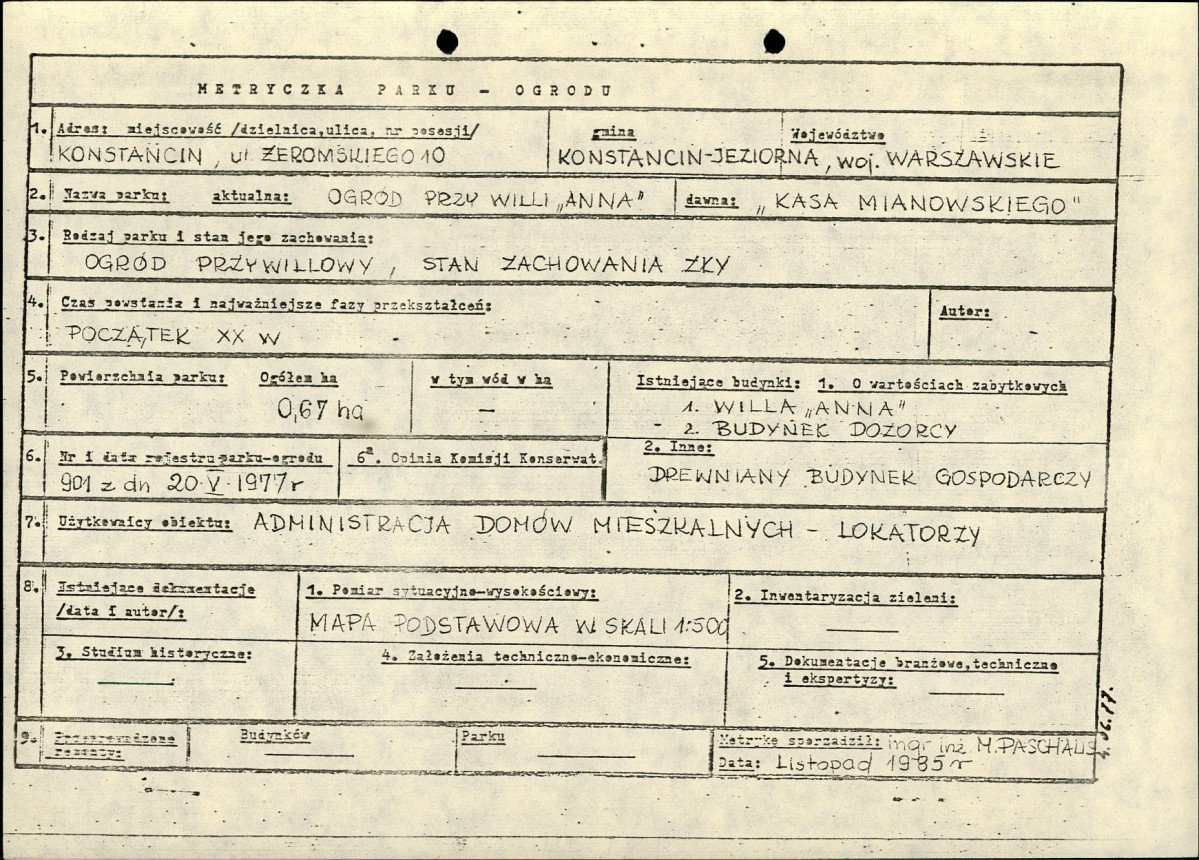 METRYCZKA PARKU - OGRODU
1. Adres: miejscowość /dzielnica,ulica, nr posesji/ gmina Województwo
KONSTANCIN, ul ŻEROMSKIEGO 10 KONSTANCIN-JEZIORNA, woj. WARSZAWSKIE
2. Nazwa parku: aktualna: OGRÓD PRZY WILLI „ANNA" dawna: „KASA MIANOWSKIEGO"
3. Rodzaj parku i stan jego zachowania:
OGRÓD PRZYWILLOWY, STAN ZACHOWANIA ZŁY
4. Czas powstania i najważniejsze fazy przekształceń: Autor:
POCZĄTEK XX W - -
5. Powierzchnia parku: Ogółem ha w tym wód w ha Istniejące budynki: 1. O wartościach zabytkowych
0,67 ha - 1. WILLA „ANNA"
- 2. BUDYNEK DOZORCY
6. Nr i data rejestru parku-ogrodu 6a. Opinia Komisji Konserwat. 2. Inne:
901 z dn 20.V.1977r DREWNIANY BUDYNEK GOSPODARCZY
7. Użytkownicy obiektu: ADMINISTRACJA DOMÓW MIESZKALNYCH - LOKATORZY
8. Istniejące dokumentacje 1. Pomiar sytuacyjno-wysokościowy: 2. Inwentaryzacja zieleni:
/data i autor/: MAPA PODSTAWOWA W SKALI 1:500
3. Studium historyczne: 4. Założenia techniczno-ekonomiczne: 5. Dokumentacje branżowe,techniczne
i ekspertyzy:
9. Przeprowadzone Budynków Parku Metrykę sporządził: mgr inż M.PASCHALIS
remonty: Data: Listopad 1985r